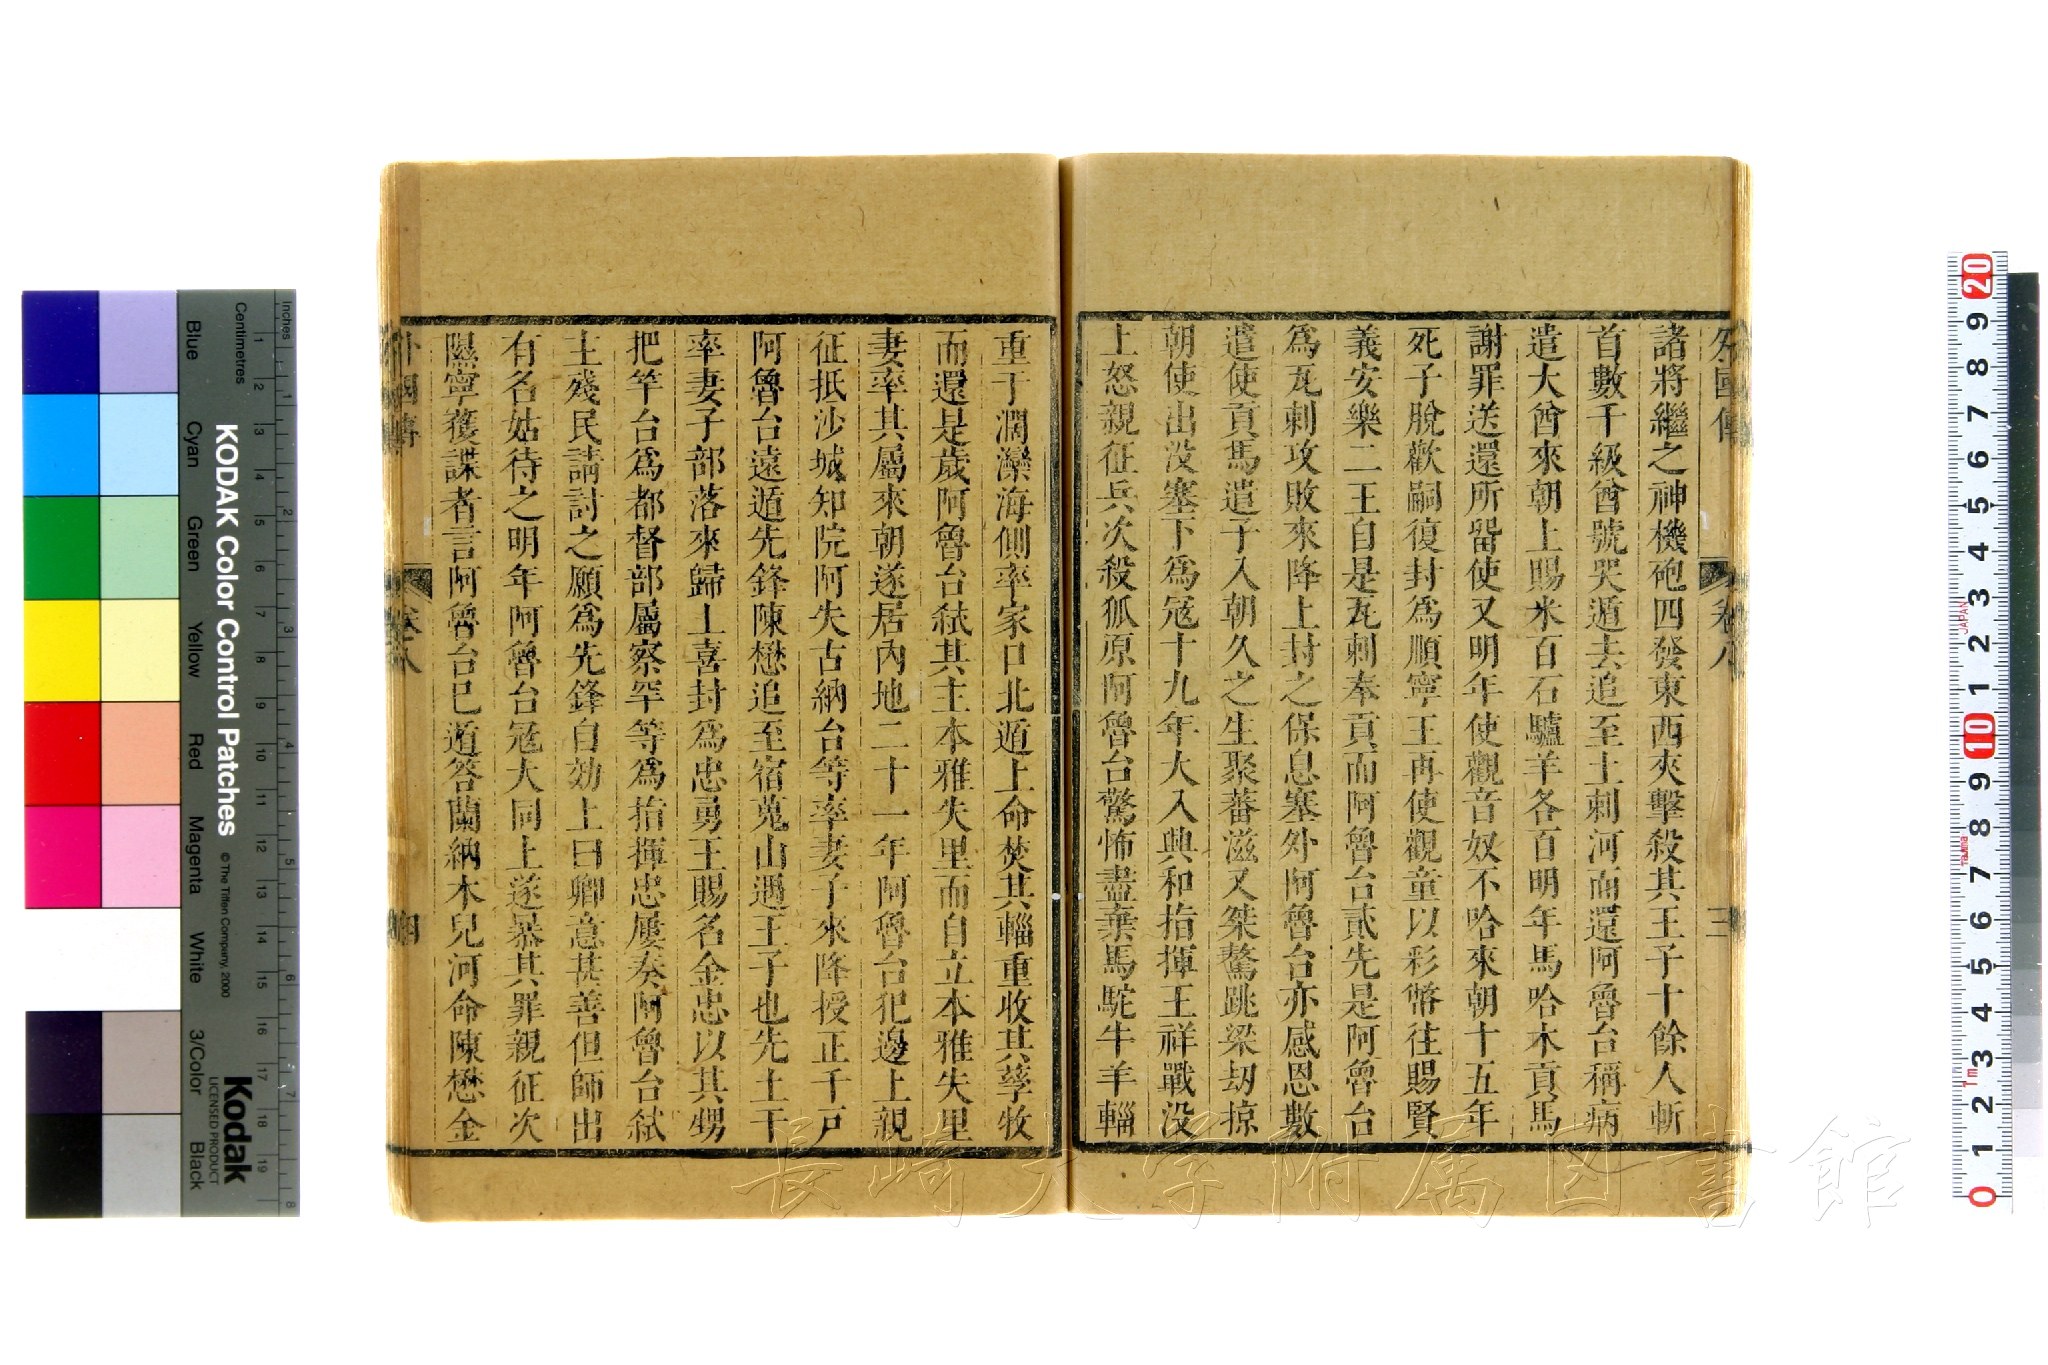 外國傳 卷八 三
諸將繼之神機砲四發東西夾擊殺其王子十餘人斬
首數千級酋號哭遁去追至土剌河而還阿魯台稱病
遣大酋來朝上賜米百石驢羊各百明年馬哈木貢馬
謝罪送還所畱使又明年使觀音奴不哈來朝十五年
死子脫歡嗣復封爲順寧王再使觀童以彩幣往賜賢
義安樂二王自是瓦剌奉貢而阿魯台貳先是阿魯台
爲瓦剌攻敗來降上封之保息塞外阿魯台亦感恩數
遣使貢馬遣子入朝久之生聚蕃滋又桀驁跳梁刼掠
朝使出没塞下爲冦十九年大入興和指揮王祥戰没
上怒親征兵次殺狐原阿魯台驚怖盡棄馬駝牛羊輜
重于濶灤海側率家口北遁上命焚其輜重收其孳牧
而還是歲阿魯台弒其主本雅失里而自立本雅失里
妻率其屬來朝遂居內地二十一年阿魯台犯邊上親
征抵沙城知院阿失古納台等率妻子來降授正千戸
阿魯台遠遁先鋒陳懋追至宿嵬山遇王子也先土干
率妻子部落來歸上喜封爲忠勇王賜名金忠以其甥
把竿台爲都督部屬察罕等爲指揮忠屢奏阿魯台弒
主殘民請討之願爲先鋒自効上曰卿意甚善但師出
有名姑待之明年阿魯台冦大同上遂暴其罪親征次
隰寧獲諜者言阿魯台已遁答蘭納木兒河命陳懋金
外國傳 卷八 四
KODAK Color Control Patches
© The Tiffen Company, 2000
Kodak
LICENSED PRODUCT
Inches
Centimetres
Blue Cyan Green Yellow Red Magenta White 3/Color Black
長崎大学附属図書館
JAPAN